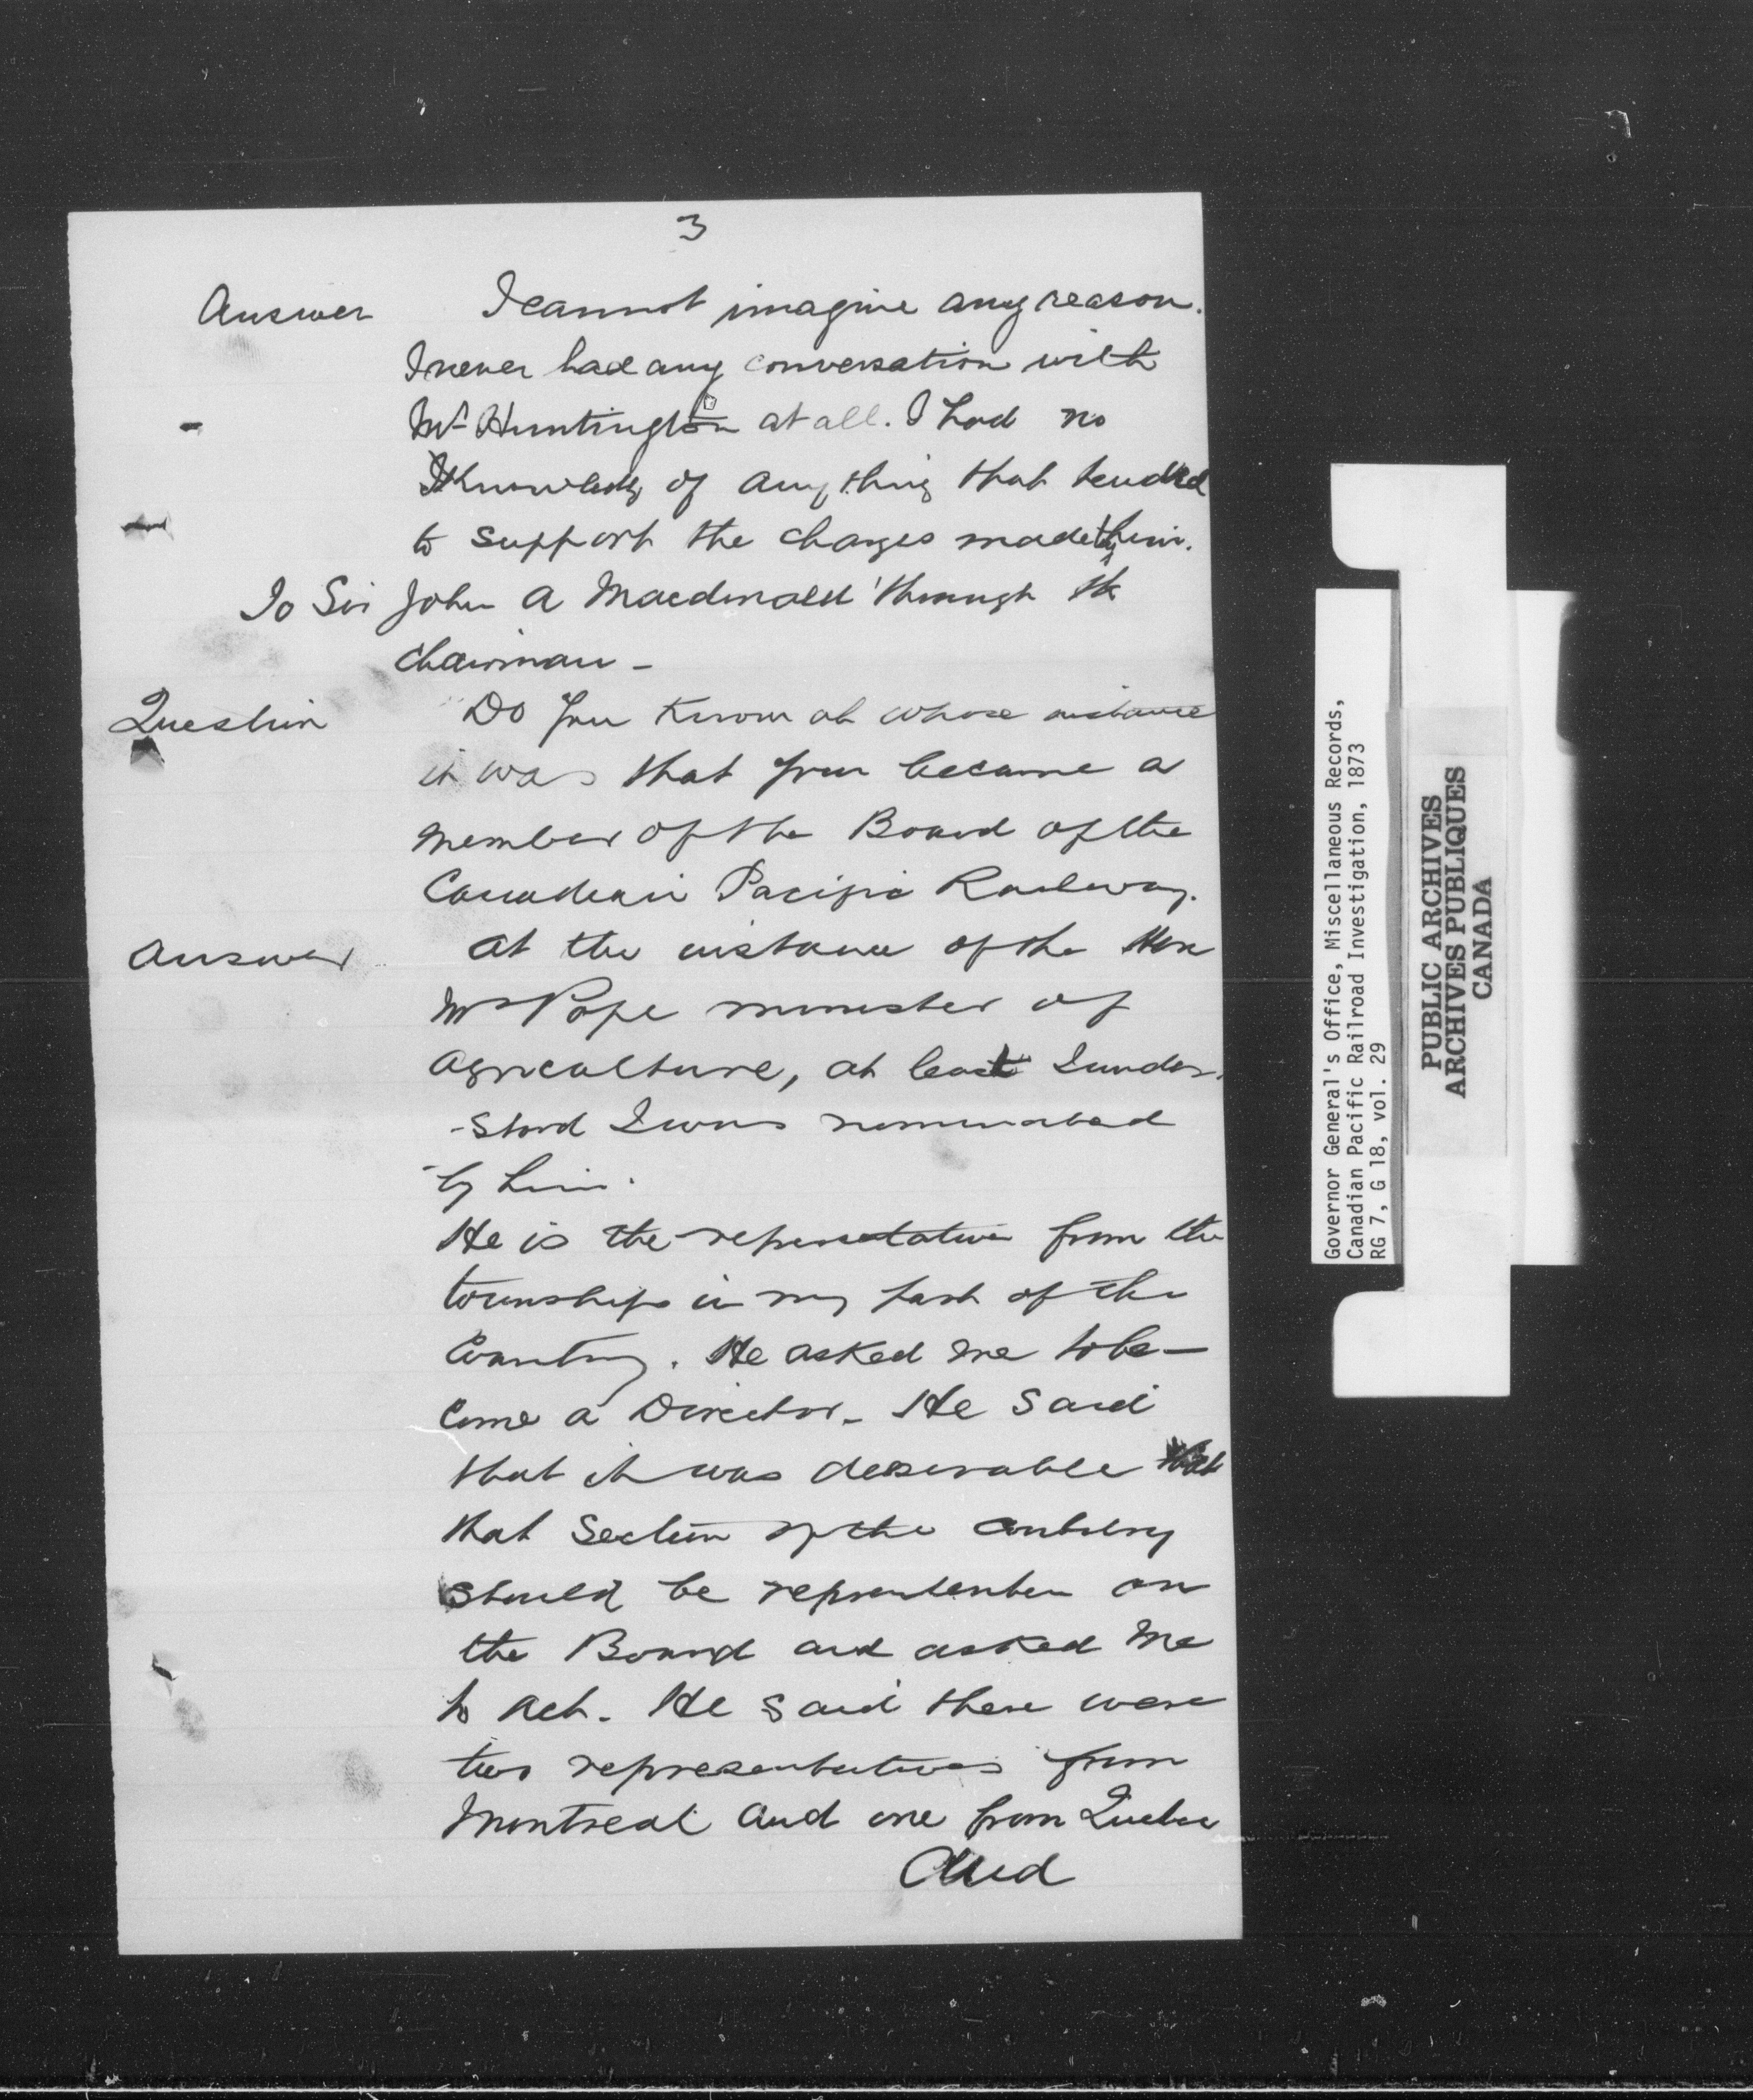 3
Answer I cannot imagine any reason.
I never had any conversation with
Mr Huntington at all. I had no
Knowledge of anything that tended
to support the charges made by him.
To Sir John A Macdonald through the
Chairman -
Question Do you Know at whose instance
it was that you became a
member of the Board of the
Canadian Pacific Railway.
Answer At the instance of the Hon
Mr Pope minister of
Agriculture, at least I under-
-stood I was nominated
by him.
He is the representative from the
townships in my part of the
Country. He asked me to be-
come a Director. He said
that it was desirable that
that Section of the Country
should be represented on
the Board and asked me
to act. He said there were
two representatives from
Montreal and one from Quebec
And
Governor General's Office, Miscellaneous Records,
Canadian Pacific Railroad Investigation, 1873
RG 7, G 18, vol. 29
PUBLIC ARCHIVES
ARCHIVES PUBLIQUES
CANADA